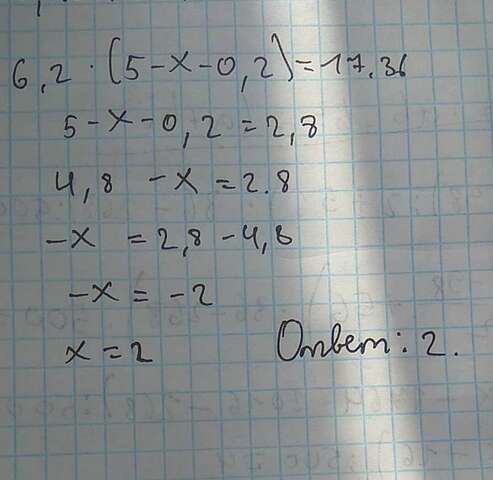 6,2 · (5-x-0,2)=17.36
5-x-0,2=2,8
4,8 -x=2.8
-x =2,8-4,8
-x=-2
x=2 Ответ: 2.